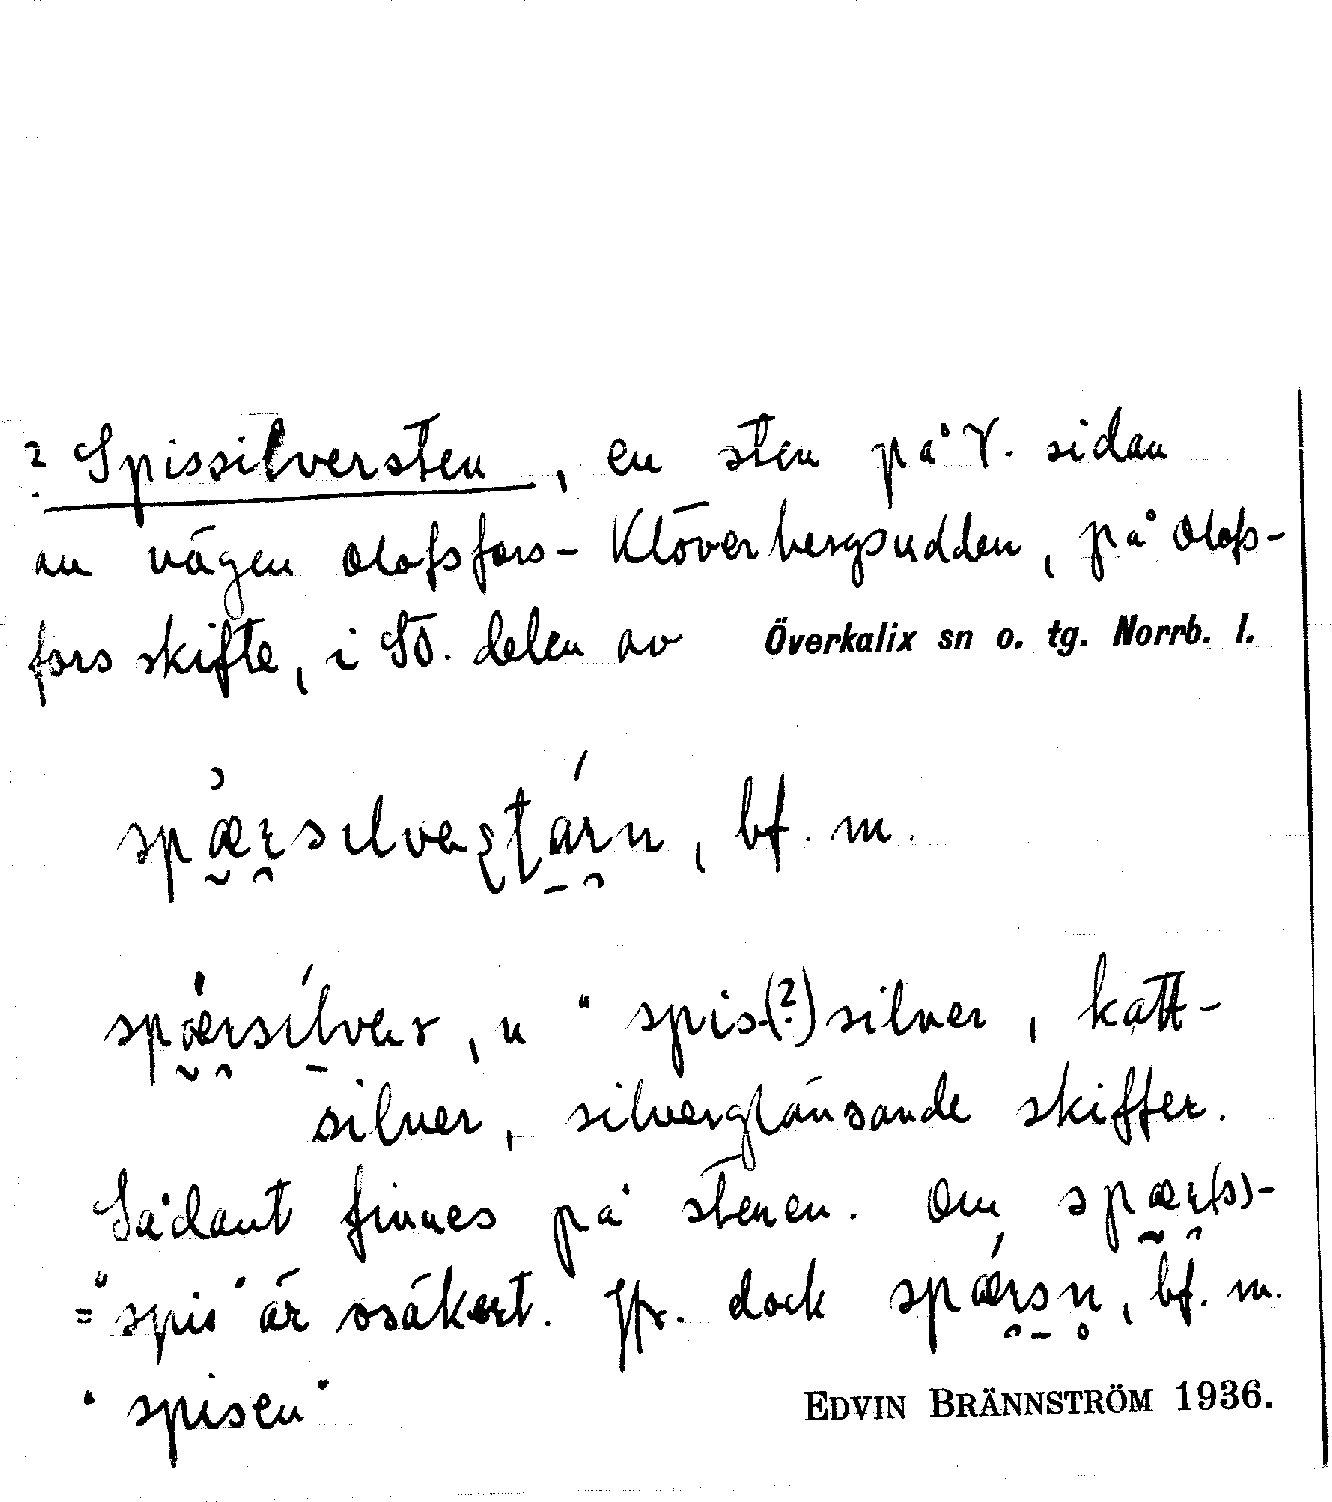 ? Spissilversten, en sten på V. sidan
av vägen Olofsfors - Klöverbergsudden, på Olofs-
fors skifte, i SÖ. delen av Överkalix sn o. tg. Norrb. l.
bf. m.
n "spis(?)silver, katt-
silver, silverglänsande skiffer.
Sådant finnes på stenen. Om spær(s)-
= "spis" är osäkert. Jfr. dock bf. m.
"spisen"
EDVIN BRÄNNSTRÖM 1936.